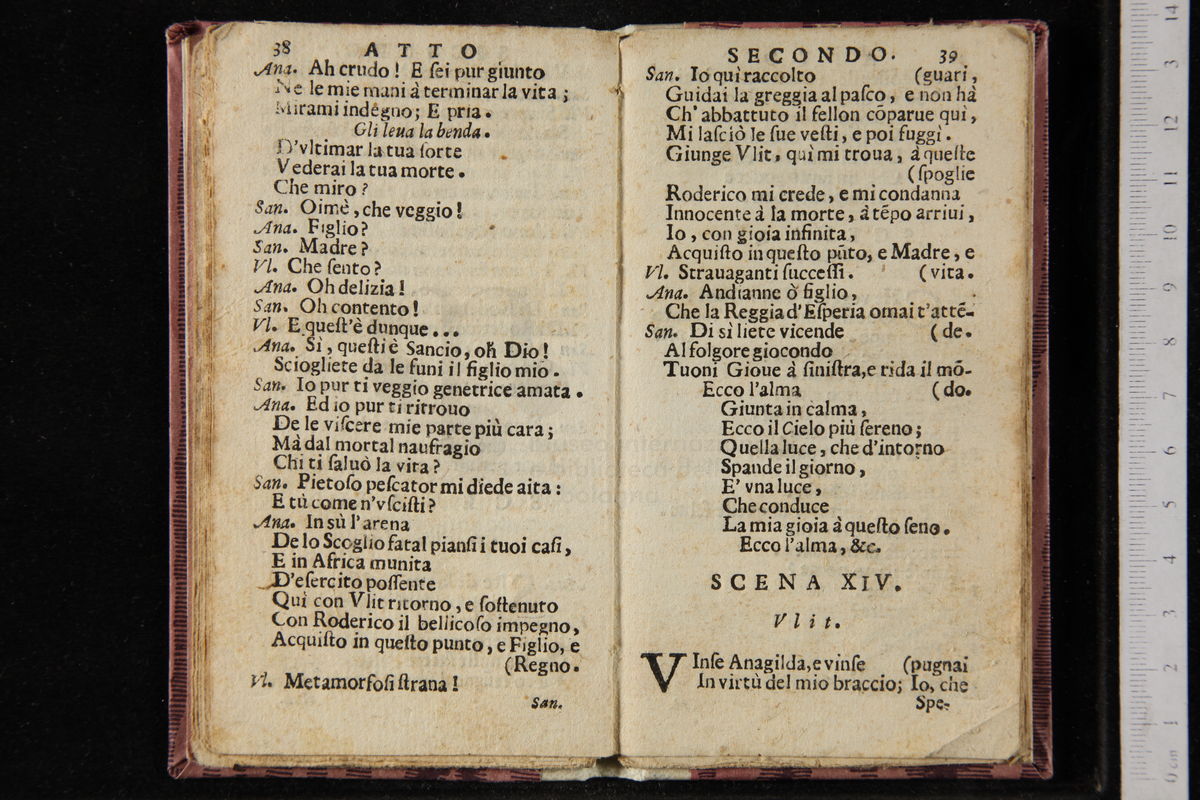 38 ATTO
Ana. Ah crudo! E ſei pur giunto
Ne le mie mani à terminar la vita;
Mirami indegno; E pria.
Gli leua la benda.
D'vltimar la tua ſorte
Vederai la tua morte.
Che miro?
San. Oimè, che veggio!
Ana. Figlio?
San. Madre?
Vl. Che ſento?
Ana. Oh delizia!
San. Oh contento!
Vl. E queſt'è dunque...
Ana. Sì, queſti è Sancio, oh Dio!
Sciogliete da le funi il figlio mio.
San. Io pur ti veggio genetrice amata.
Ana. Ed io pur ti ritrouo
De le viſcere mie parte più cara;
Mà dal mortal naufragio
Chi ti ſaluò la vita?
San. Pietoſo peſcator mi diede aita:
E tù come n'vſciſti?
Ana. In sù l'arena
De lo Scoglio fatal pianſi i tuoi caſi,
E in Africa munita
D'eſercito poſſente
Quì con Vlit ritorno, e ſoſtenuto
Con Roderico il bellicoſo impegno,
Acquiſto in queſto punto, e Figlio, e
(Regno.
Vl. Metamorfoſi ſtrana!
San.
SECONDO. 39
San. Io quì raccolto (guari,
Guidai la greggia al paſco, e non hà
Ch' abbattuto il fellon cōparue qui,
Mi laſciò le ſue veſti, e poi fuggì.
Giunge Vlit, quì mi troua, à queſte
(ſpoglie
Roderico mi crede, e mi condanna
Innocente à la morte, à tēpo arriui,
Io, con gioia infinita,
Acquiſto in queſto pūto, e Madre, e
Vl. Strauaganti ſucceſſi. (vita.
Ana. Andianne ò figlio,
Che la Reggia d'Eſperia omai t'attē-
San. Di sì liete vicende (de.
Al folgore giocondo
Tuoni Gioue à ſiniſtra, e rida il mō-
Ecco l'alma (do.
Giunta in calma,
Ecco il Cielo più ſereno;
Quella luce, che d'intorno
Spande il giorno,
E' vna luce,
Che conduce
La mia gioia à queſto ſeno.
Ecco l'alma, &c.
SCENA XIV.
Vlit.
VInſe Anagilda, e vinſe (pugnai
In virtù del mio braccio; Io, che
Spe-
14
13
12
11
10
9
8
7
6
5
4
3
2
1
0 cm